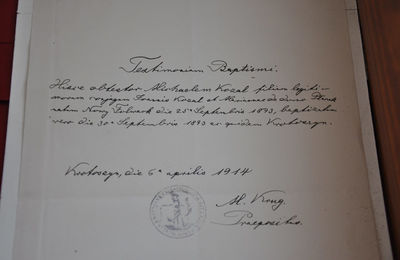 Testimonium Baptismi.
Hisce obtestor Michaelem Kozal filium legiti-
morum conjugum Joannis Kozal et Mariannae de domo
natum Nowy Folwark die 25ª Septembris 1893, baptizatum
vero die 30ª Septembris 1893 in Krotoszyn.
Krotoszyn, die 6ª aprilis 1914
M. Krug.
Praepositus.